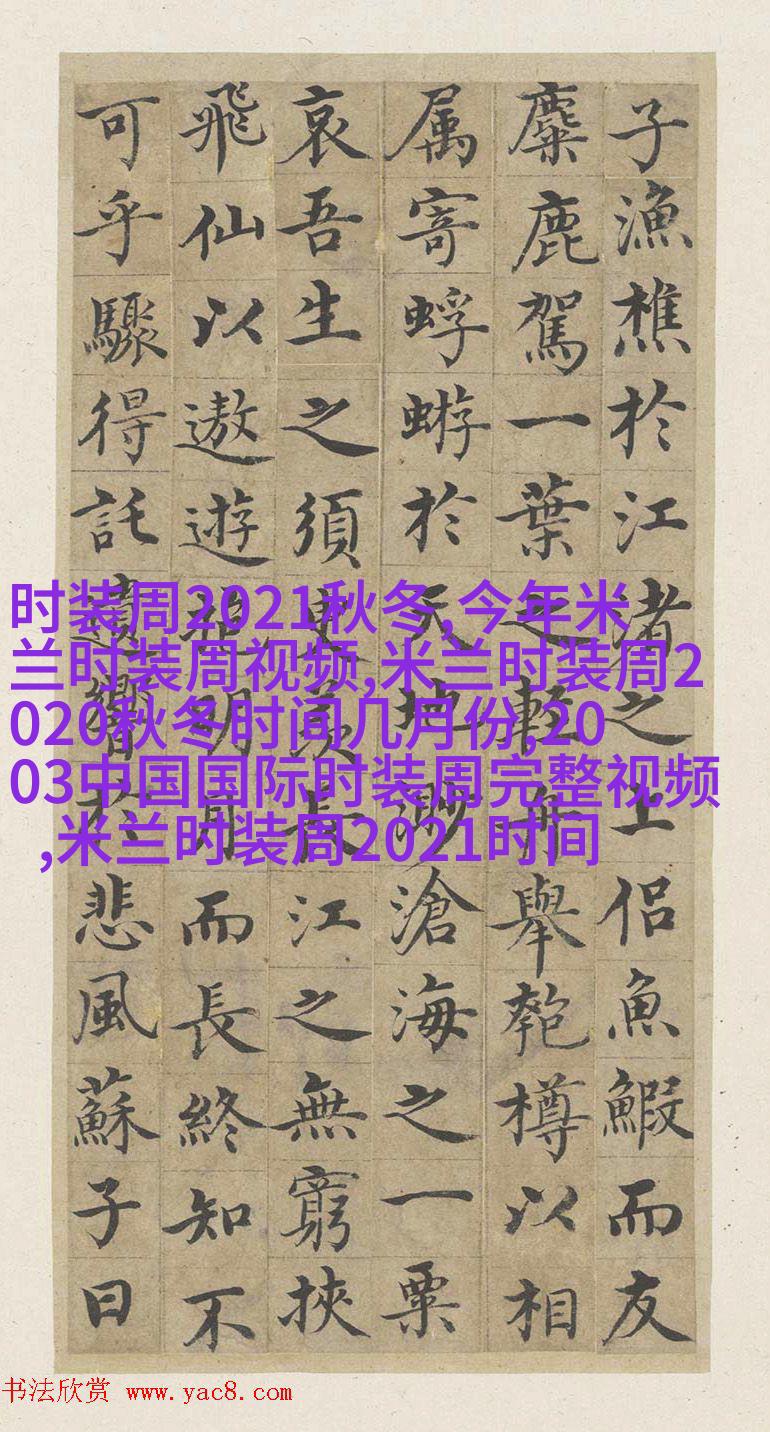 子漁樵於江渚之上侶魚鰕而友
麋鹿駕一葉之輕舟舉匏樽以相
属寄蜉蝣於天地渺滄海之一粟
哀吾生之須臾羨長江之無窮挾
飛仙以遨遊抱明月而長終知不
可乎驟得託遺響於悲風蘇子曰
时装周2021秋冬,今年米
兰时装周视频,米兰时装周2
020秋冬时间几月份,20
03中国国际时装周完整视频
,米兰时装周2021时间
书法欣赏 www.yac8.com